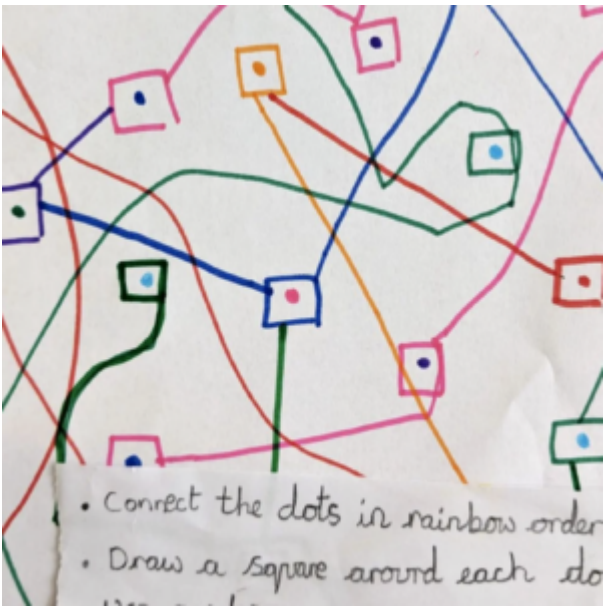 • Connect the dots in rainbow order
• Draw a square around each